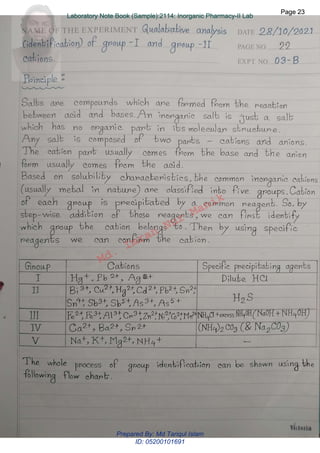 Page 23
Laboratory Note Book (Sample):2114: Inorganic Pharmacy-II Lab
NAME OF THE EXPERIMENT Qualabative analysis DATE 28/10/2021
(identification) of group-I and group-II PAGE NO 22
cations. EXPT NO. 03-B
Principle:
Salts are compounds which are formed from the reaction
between acid and bases. An inorganic salt is just a salt
which has no organic part in its molecular structure.
Any salt is composed of two parts - cations and anions.
The cation part usually comes from the base and the anion
form usually comes from the acid.
Based on solubility characteristics, the common inorganic cations
(usually metal in nature) are classified into five groups. Cation
of each group is precipitated by a common reagent. So, by
step-wise addition of those reagents, we can first identify
which group the cation belongs to. Then by using specific
reagents we can confirm the cation.
Group Cations Specific precipitating agents
I Hg+, Pb2+, Ag+ Dilute HCl
II Bi3+, Cu2+, Hg2+, Cd2+, Pb2+, Sn2+,
Sn4+, Sb3+, Sb5+, As3+, As5+ H2S
III Fe2+, Fe3+, Al3+, Cr3+, Zn2+, Ni2+, Co2+, Mn2+ NH4Cl+excess NH4OH/(NaOH+NH4OH)
IV Ca2+, Ba2+, Sr2+ (NH4)2CO3 (& Na2CO3)
V Na+, K+, Mg2+, NH4+ —
The whole process of group identification can be shown using the
following flow chart.
Prepared By: Md Tariqul Islam
ID: 05200101691